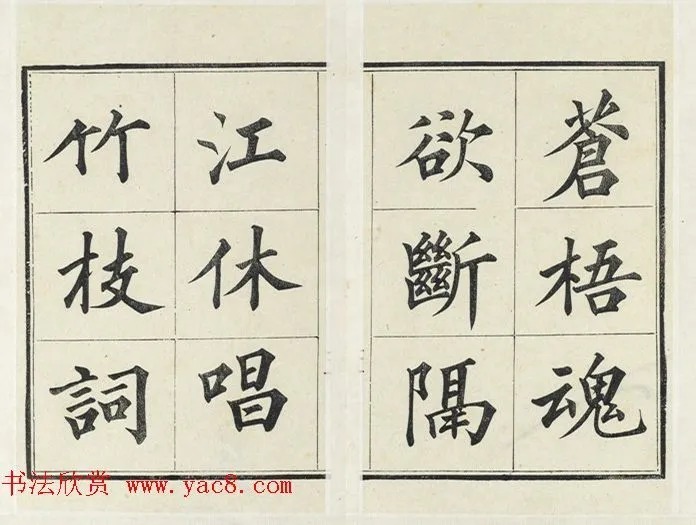 蒼梧魂
欲斷隔
江休唱
竹枝詞
书法欣赏 www.yac8.com